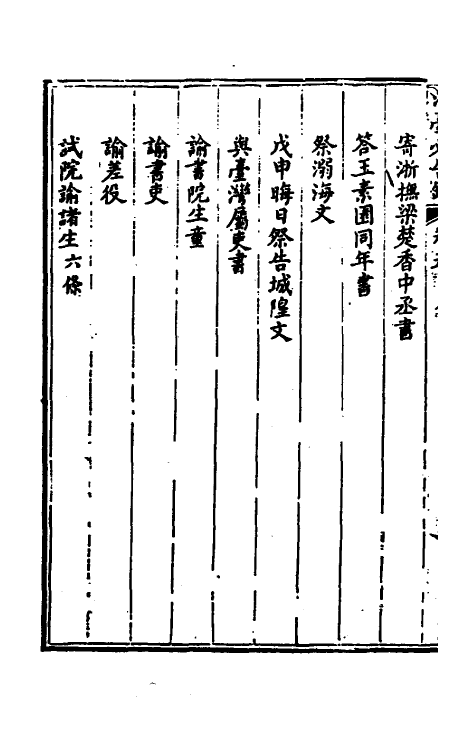 寄浙撫梁楚香中丞書
答王素園同年書
祭溺海文
戊申晦日祭告城隍文
與臺灣屬吏書
諭書院生童
諭書吏
諭差役
試院諭諸生六條